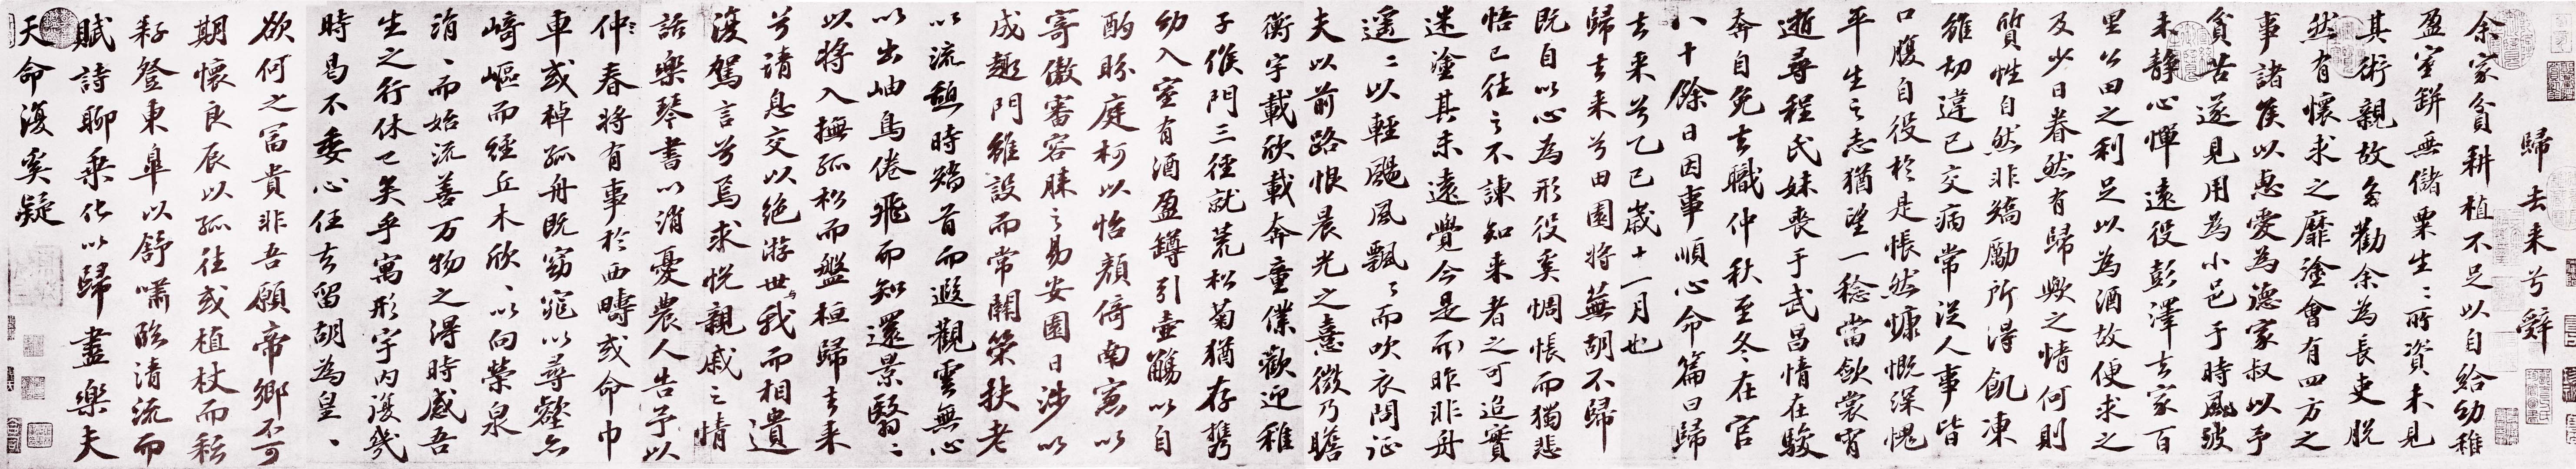 歸去来兮辞
余家貧耕植不足以自給幼稚
盈室缾無儲粟生〻所資未見
其術親故多勸余為長吏脱
然有懷求之靡塗會有四方之
事諸侯以惠愛為德家叔以予
貧苦遂見用為小邑于時風波
未静心憚遠役彭澤去家百
里公田之利足以為酒故便求之
及少日眷然有歸歟之情何則
質性自然非矯勵所得飢凍
雖切違己交病常從人事皆
口腹自役於是悵然慷慨深愧
平生之志猶望一稔當斂裳宵
逝尋程氏妹喪于武昌情在駿
奔自免去職仲秋至冬在官
八十餘日因事順心命篇曰歸
去来兮乙巳歲十一月也
歸去来兮田園将蕪胡不歸
既自以心為形役奚惆悵而獨悲
悟已往之不諫知来者之可追實
迷塗其未遠覺今是而昨非舟
遥〻以輕颺風飄〻而吹衣問征
夫以前路恨晨光之熹微乃瞻
衡宇載欣載奔童僕歡迎稚
子候門三徑就荒松菊猶存携
幼入室有酒盈罇引壺觴以自
酌眄庭柯以怡顔倚南窻以
寄傲審容膝之易安園日涉以
成趣門雖設而常關策扶老
以流憩時矯首而遐觀雲無心
以出岫鳥倦飛而知還景翳〻
以将入撫孤松而盤桓歸去来
兮請息交以绝游世與我而相遺
復駕言兮焉求悦親戚之情
話樂琴書以消憂農人告予以
仲春将有事於西疇或命巾
車或棹孤舟既窈窕以尋壑亦
﨑嶇而經丘木欣〻以向榮泉
涓〻而始流善万物之得時感吾
生之行休已矣乎寓形宇内復幾
時曷不委心任去留胡為皇〻
欲何之冨貴非吾願帝鄉不可
期懷良辰以孤往或植杖而耘
耔登東皐以舒嘯臨清流而
賦詩聊乘化以歸盡樂夫
天命復奚疑